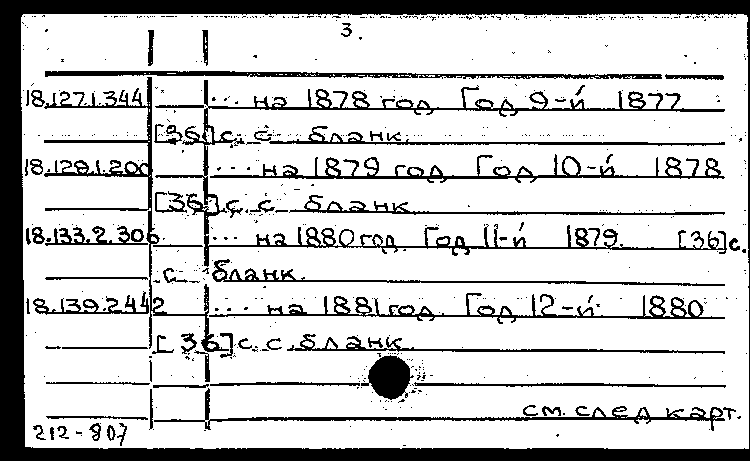 3.
18.127.1.344 ... на 1878 год. Год 9-й 1877
[36] с. с бланк.
18.129.1.200 ... на 1879 год. Год 10-й 1878
[36] с. с бланк
18.133.2.306 ... на 1880 год. Год 11-й 1879. [36] с.
с бланк.
18.139.2442 ... на 1881 год. Год 12-й. 1880
[36] с. с бланк.
см. след карт.
212-807